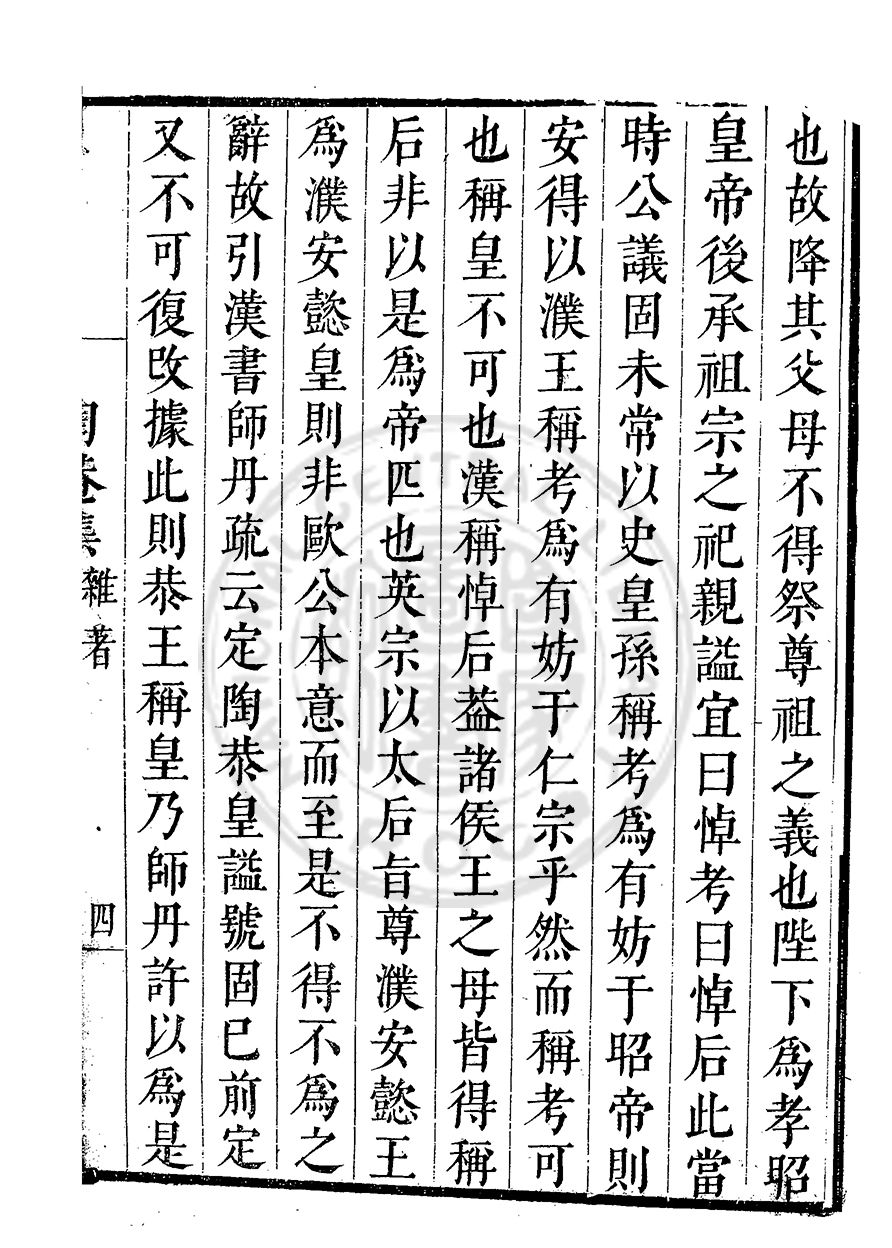 也故降其父母不得祭尊祖之義也陛下爲孝昭
皇帝後承祖宗之祀親謚宜曰悼考曰悼后此當
時公議固未常以史皇孫稱考爲有妨于昭帝則
安得以濮王稱考爲有妨于仁宗乎然而稱考可
也稱皇不可也漢稱悼后葢諸侯王之母皆得稱
后非以是爲帝匹也英宗以太后旨尊濮安懿王
爲濮安懿皇則非歐公本意而至是不得不爲之
辭故引漢書師丹疏云定陶恭皇謚號固已前定
又不可復改據此則恭王稱皇乃師丹許以爲是
陶菴集 雜著 四